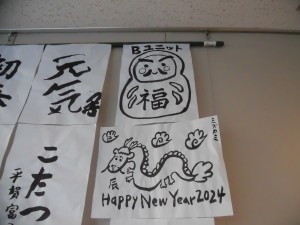 元気
こたつ
平賀富
Bユニット
福
辰
Happy New Year 2024